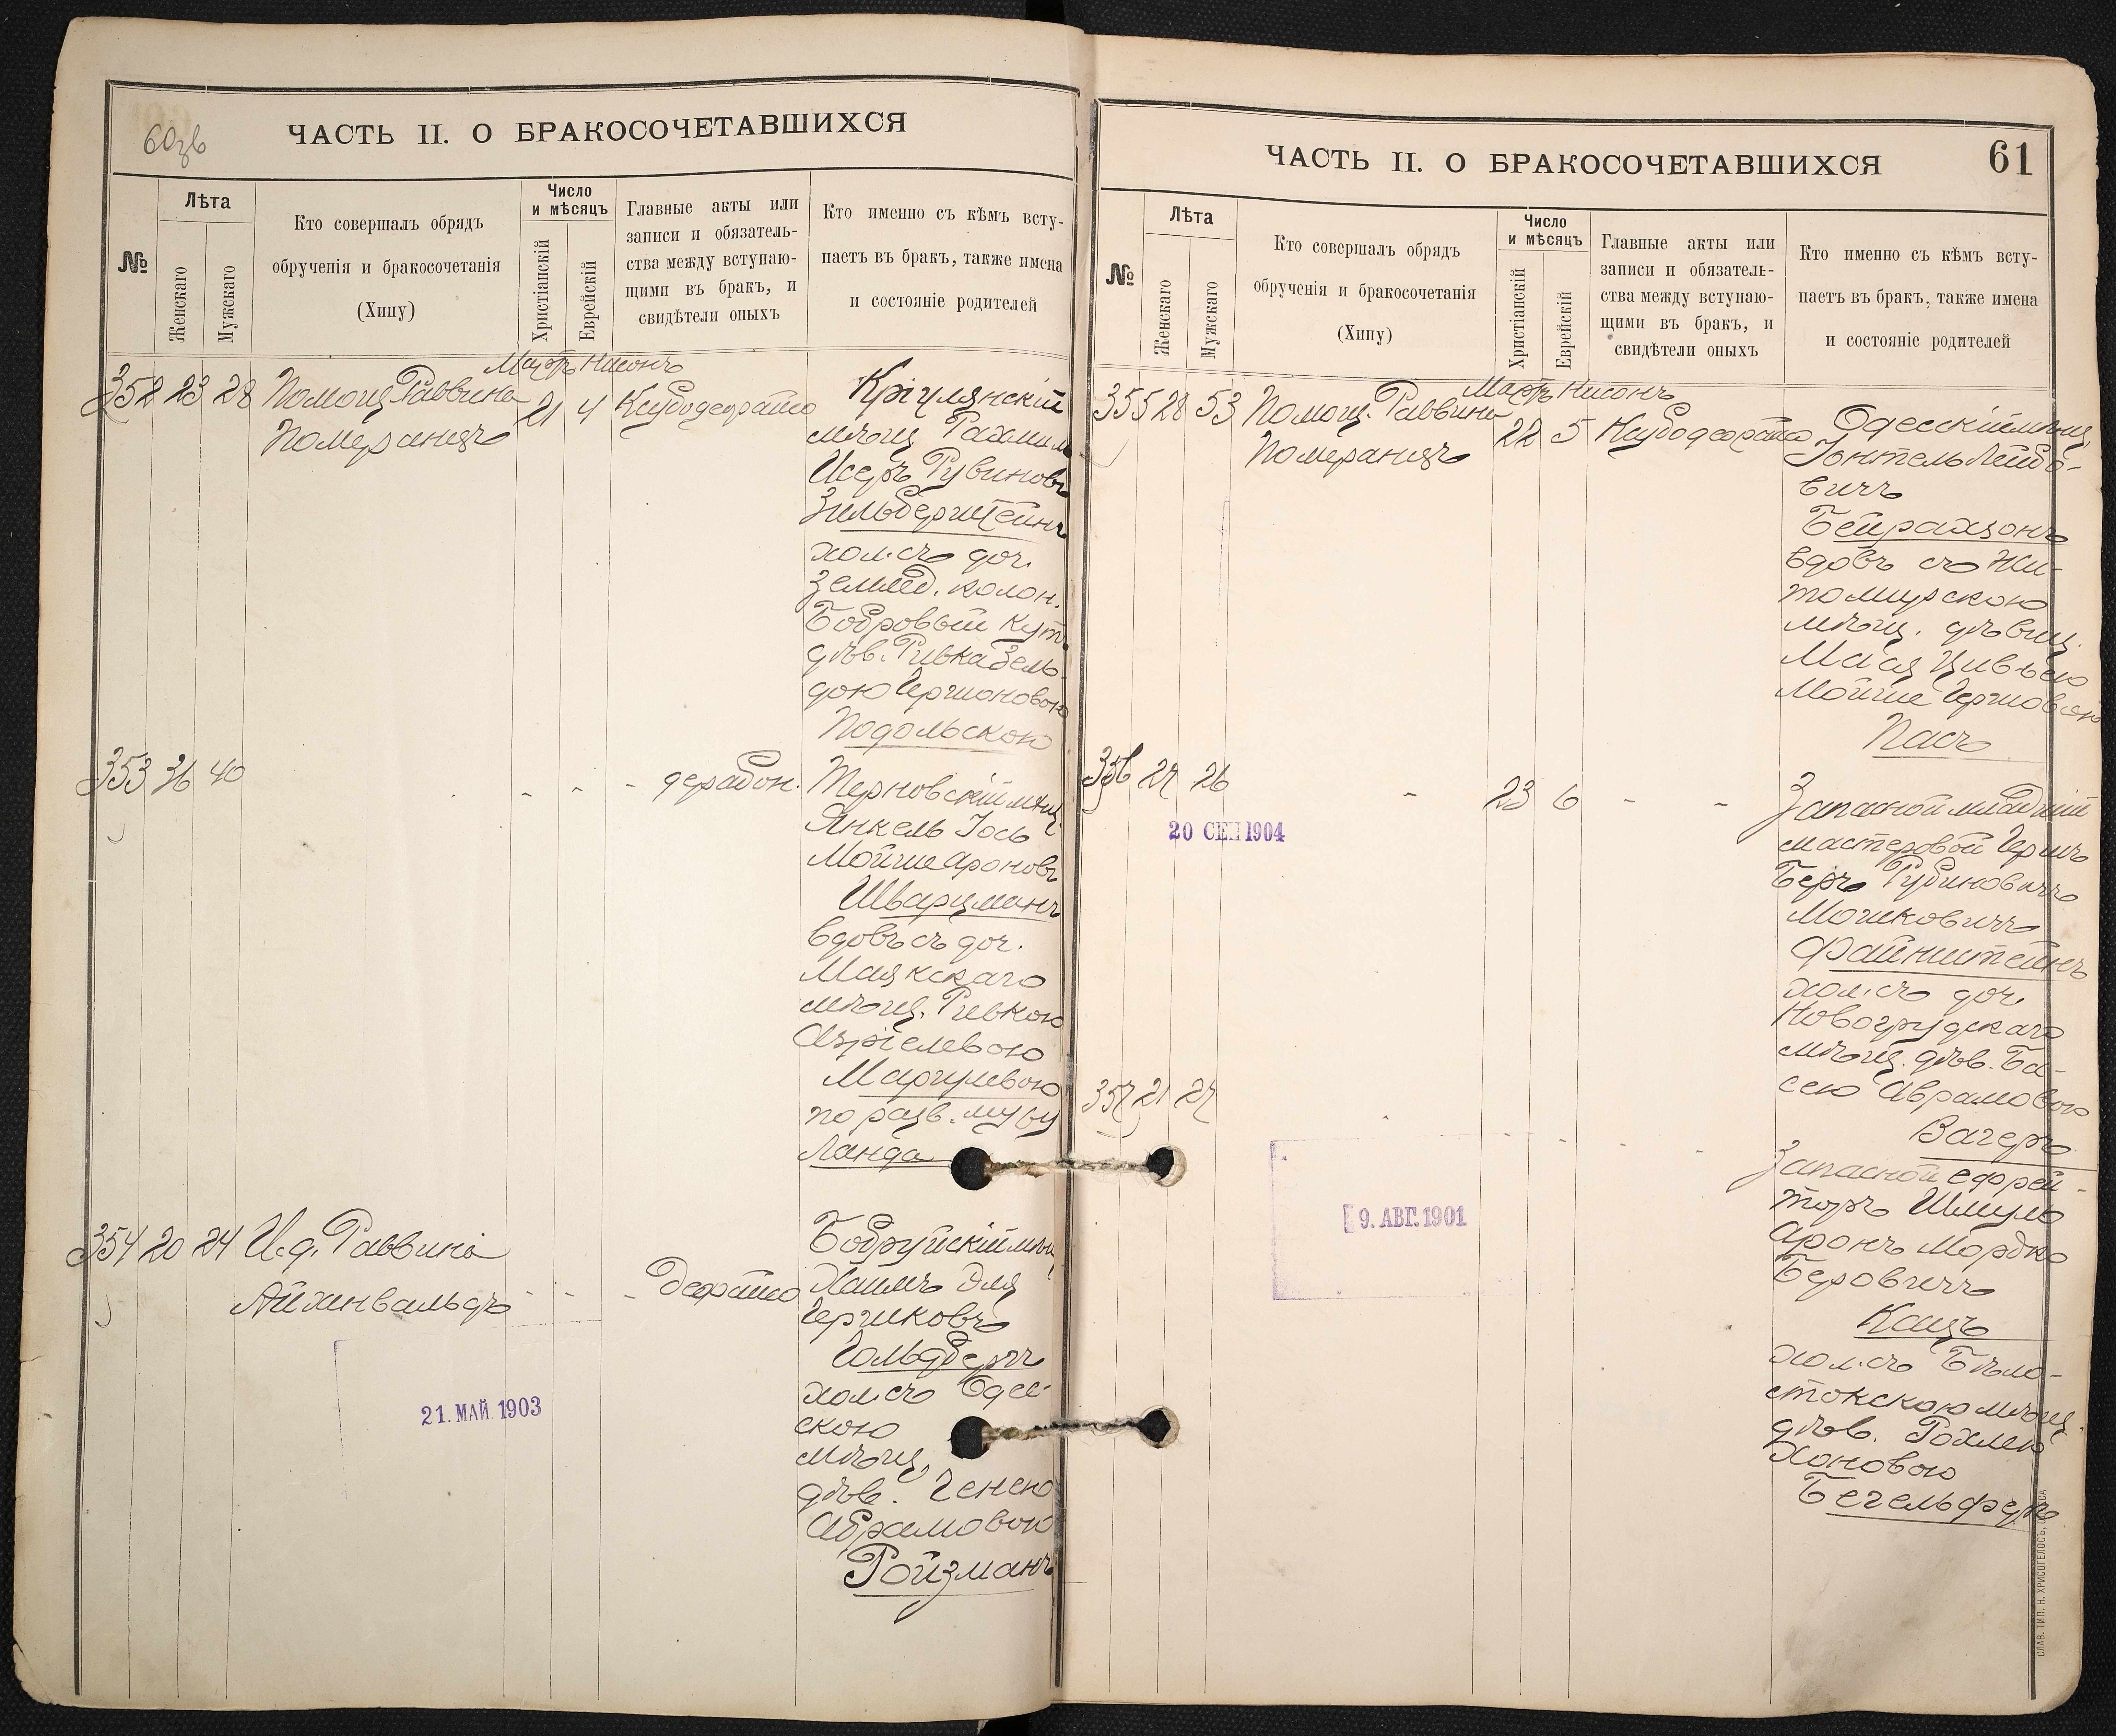 60зв
ЧАСТЬ II. О БРАКОСОЧЕТАВШИХСЯ
№
Лѣта
Женскаго
Мужскаго
Кто совершалъ обрядъ
обрученія и бракосочетанія
(Хипу)
Число
и мѣсяцъ
Христіанскій
Еврейскій
Главные акты или
записи и обязатель-
ства между вступаю-
щими въ бракъ, и
свидѣтели оныхъ
Кто именно съ кѣмъ всту-
паетъ въ бракъ, также имена
и состояніе родителей
Мартъ Нисонъ
352 23 28 Помощ. Раввина 21 4
Померанцъ
Кріулянскій
мѣщ. Рахмиль
Исеръ Рувиновъ
Зильберштейнъ
хол. съ доч.
землед. колон.
Бобровый Кут.
дѣв. Ривка Зель-
дою Гершоновою
Подольскою
353 36 40 - - -
Терновскій мѣщ.
Янкель Іось
Мойше Ароновъ
Шварцманъ
вдовъ съ доч.
Маякскаго
мѣщ. Ривкою
Азріелевою
Маргулевою
по разв. мужу
Ланда
354 20 24 И. д. Раввина
Айхенвальдъ - - -
Бобруйскій мѣщ.
Хаимъ Эля
Гершковъ
Гольдбергъ
хол. съ Одес-
скою
мѣщ.
дѣв. Генею
Абрамовою
Ройзманъ
21. МАЙ 1903
61
ЧАСТЬ II. О БРАКОСОЧЕТАВШИХСЯ
№
Лѣта
Женскаго
Мужскаго
Кто совершалъ обрядъ
обрученія и бракосочетанія
(Хипу)
Число
и мѣсяцъ
Христіанскій
Еврейскій
Главные акты или
записи и обязатель-
ства между вступаю-
щими въ бракъ, и
свидѣтели оныхъ
Кто именно съ кѣмъ всту-
паетъ въ бракъ, также имена
и состояніе родителей
Мартъ Нисонъ
355 28 53 Помощ. Раввина 22 5
Померанцъ
Одесскій мѣщ.
Іонтель Лейбо-
вичъ
Бейрахзонъ
вдовъ съ Жи-
томирскою
мѣщ. дѣвиц.
Мася Цивьею
Мойше Гершовою
Пасъ
356 27 26 - 23 6 - -
Запасной младшій
мастеровой Гершъ
Беръ Рубиновичъ
Мошковичъ
Файнштейнъ
хол. съ доч.
Новогрудскаго
мѣщ. дѣв. Ба-
сею Аврамовою
Вагеръ
20 СЕН 1904
357 21 27 - - - - -
Запасной ефрей-
торъ Шмуль
Аронъ Мордко
Беровичъ
Кацъ
хол. съ Бѣло-
стокскою мѣщ.
дѣв. Рохлею
Хоновою
Бегельферъ
9. АВГ. 1901
СЛАВ. ТИП. Н. ХРИСОГЕЛОСЪ, ОДЕССА